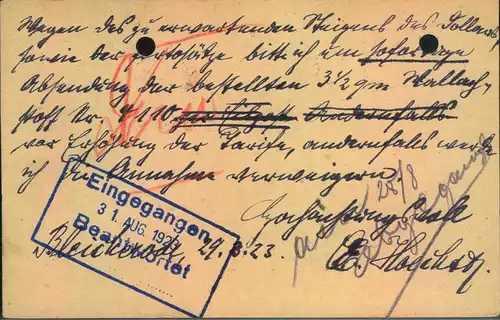 Wegen des zu erwartenden Steigens des Dollars,
sowie der Portosätze bitte ich um sofortige
Absendung der bestellten 3½ qm Wallach-
stoff Nr. 4110 per Eilpost. Andernfalls
vor Erhöhung der Tarife, andernfalls werde
ich die Annahme verweigern.
Hochachtungsvoll
Eingegangen
31. AUG. 1923
Beantwortet
29.8.23.
28/8